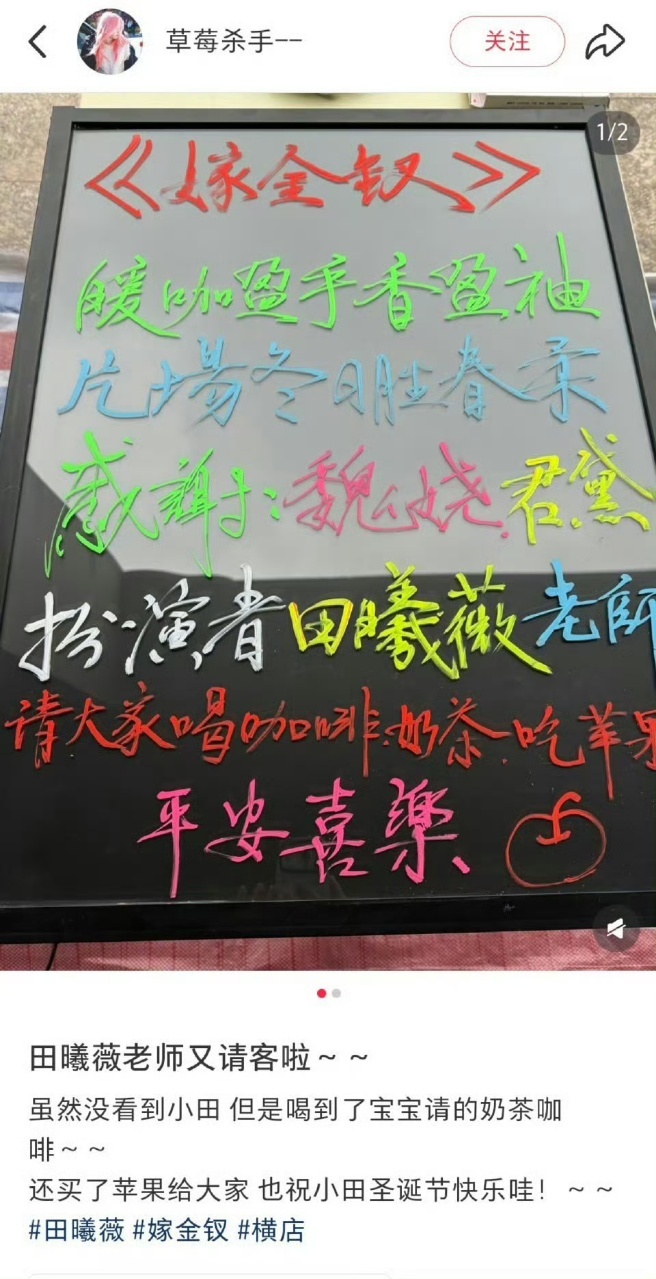 草莓杀手——
关注
1/2
《嫁金钗》
暖咖盈手香盈袖
片場冬日胜春柔
感謝于:魏伩娆.君黛
扮演者田曦薇老師
请大家喝咖啡.奶茶.吃苹果
平安喜樂、
田曦薇老师又请客啦~~
虽然没看到小田 但是喝到了宝宝请的奶茶咖
啡~~
还买了苹果给大家 也祝小田圣诞节快乐哇!~~
#田曦薇 #嫁金钗 #横店